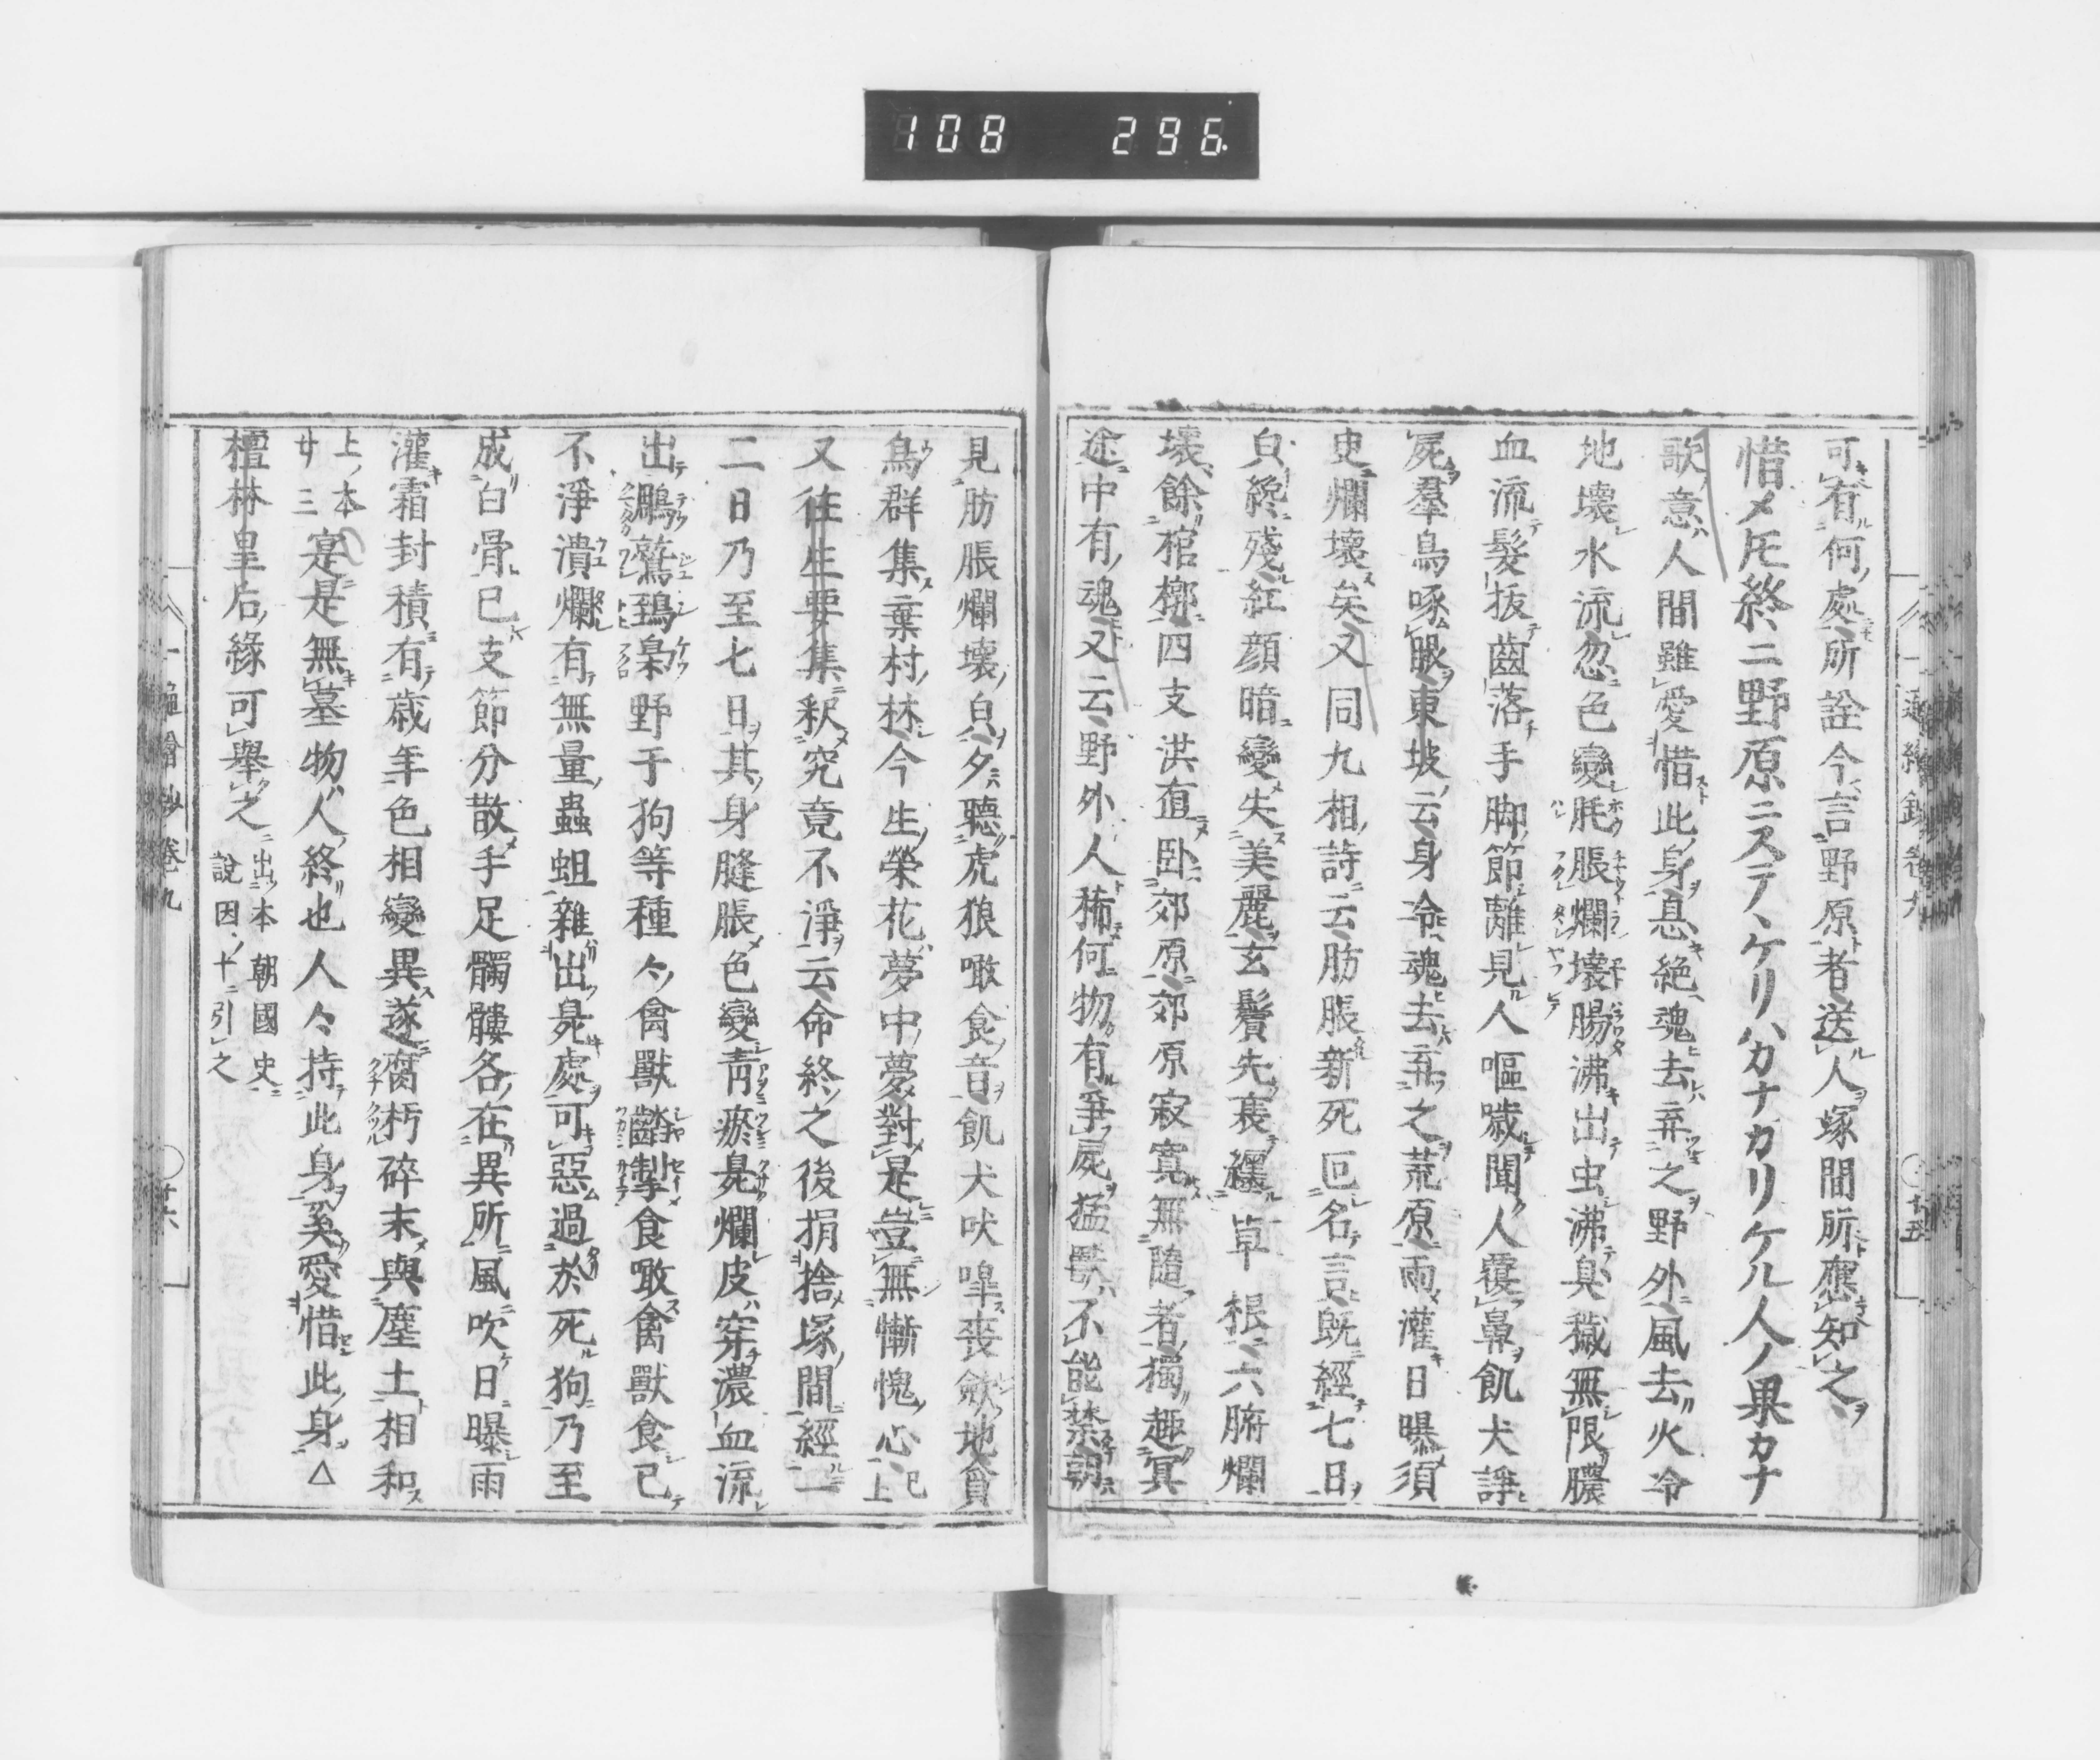 108 296
可有何處所詮今言野原者送人塚間所應知之
惜メ𪜈終ニ野原ニステヽケリハカナカリケル人ノ果カナ
歌意人間雖愛惜此身息絶魂去弃之野外風去火冷
地壊水流忽色變肨脹爛壊腸沸出虫沸臭穢無限膿
血流髮抜齒落手脚節離見人嘔噦聞人覆鼻飢犬諍
屍羣鳥啄眼東坡云身冷魂去弃之荒原雨灌日曝須
臾爛壊矣又同九相詩云肪脹新死叵名言既經七日
皃纔殘紅顔暗變失美麗玄鬢先衰纏草根六腑爛
壊餘棺槨四支洪直卧郊原郊原寂寞無隨者獨趣冥
途中有魂又云野外人稀何物有爭屍猛獸不能禁朝
見肪脹爛壊皃夕聽虎狼噉食音飢犬吠嘷喪斂地貪
烏群集棄村林今生榮花夢中夢對是豈無慚愧心 已上
又往生要集釈究竟不淨云命終之後捐捨塚間經一
二日乃至七日其身膖脹色變青瘀臭爛皮穿濃血流
出鵰鷲鵄梟野干狗等種々禽獸齜掣食噉禽獸食已
不淨潰爛有無量蟲蛆雜出臭處可惡過於死狗乃至
成白骨已支節分散手足髑髏各在異所風吹日曝雨
灌霜封積有歳年色相變異遂腐朽碎末與塵土相和
上本廿三 寔是無墓物人終也人々持此身奚愛惜此身△
檀林皇后緣可擧之 出本朝國史說因十引之